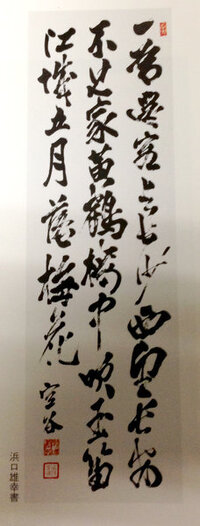 一為遷客去長沙西望長安
不見家黄鶴樓中吹玉笛
江城五月落梅花 空谷
浜口雄幸書